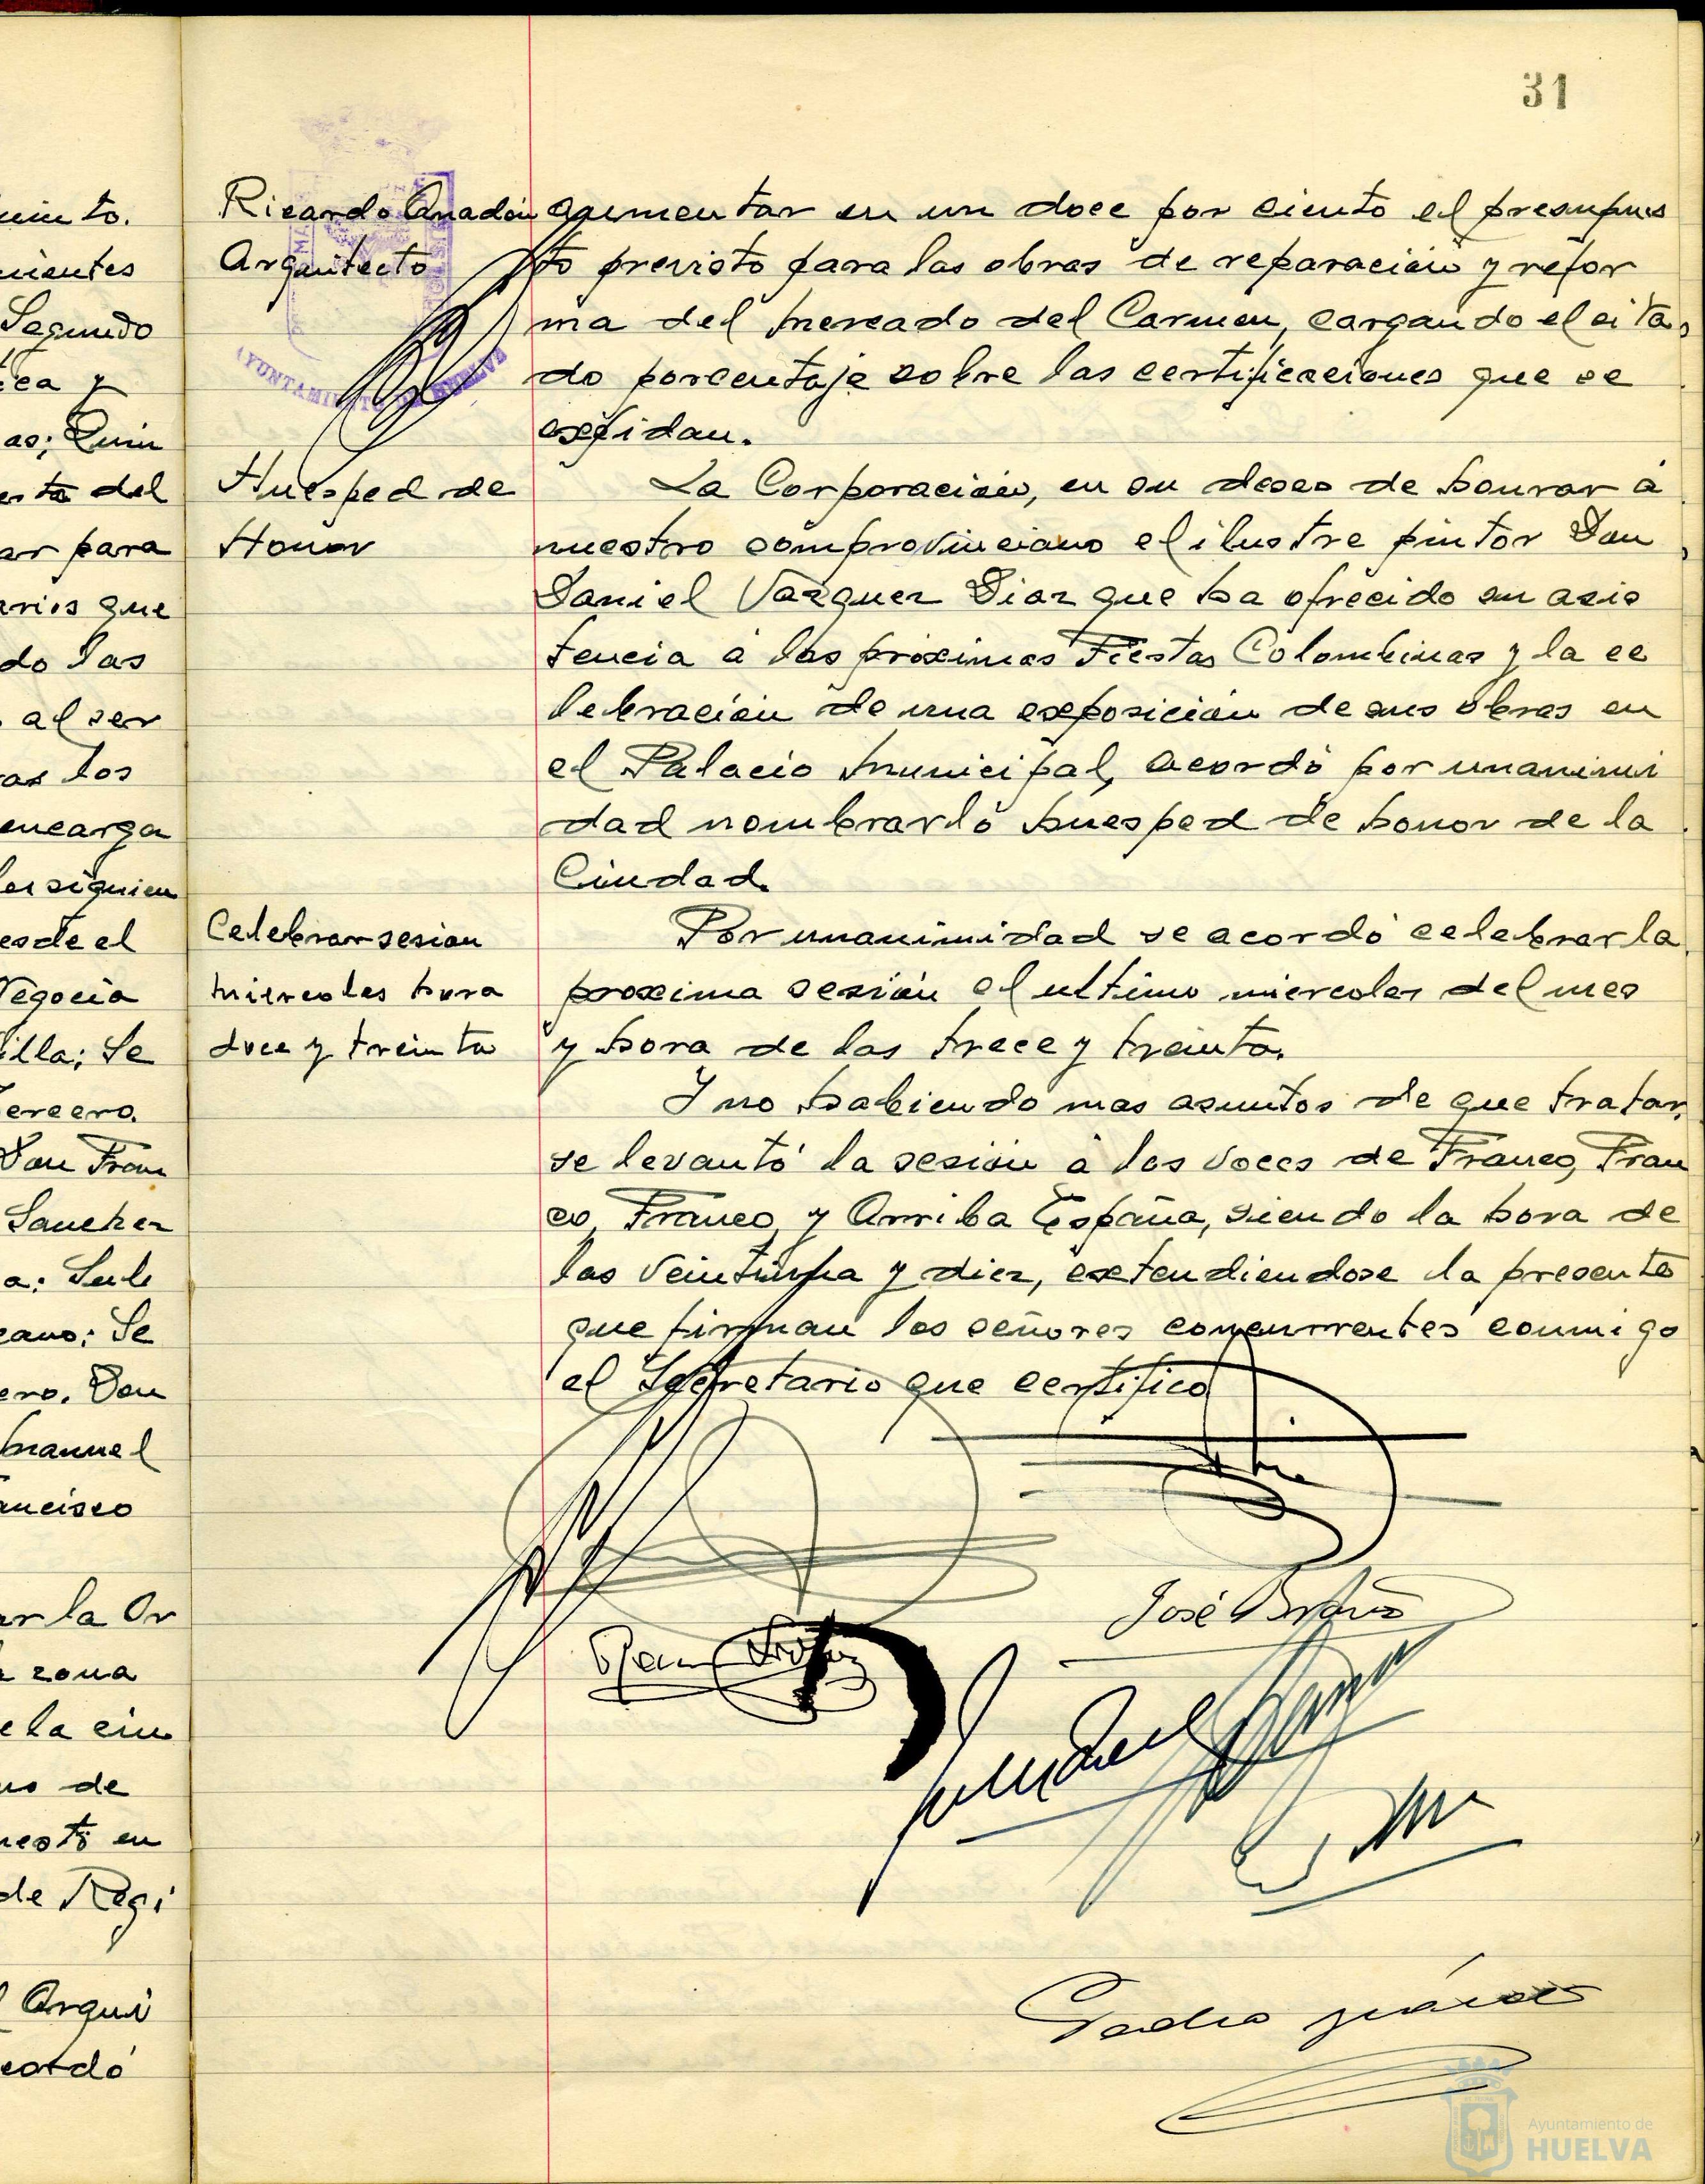 31
uinto.
nientes
Segundo
tea y
as; Quin
erta del
ar para
arios que
do las
al ser
ras los
encarga
les siguien
esde el
Negocia
illa; Se
ercero.
Don Fran
Sanchez
a; Sub
cano; Se
ero. Don
Manuel
ancisco
ar la Or
a zona
e la ciu
us de
uesto en
de Regi
Arqui
cordó
Ricardo Anadón
Arquitecto
AYUNTAMIENTO DE HUELVA
aumentar en un doce por ciento el presupues
to previsto para las obras de reparación y refor
ma del Mercado del Carmen, cargando el cita
do porcentaje sobre las certificaciones que se
expidan.
Huesped de
Honor
La Corporación, en su deseo de honrar á
nuestro comprovinciano el ilustre pintor Don
Daniel Vazquez Diaz que ha ofrecido su asis
tencia á las próximas Fiestas Colombinas y la ce
lebración de una exposición de sus obras en
el Palacio Municipal, acordó por unanimi
dad nombrarlo huesped de honor de la
Ciudad.
Celebrar sesion
miercoles hora
doce y treinta
Por unanimidad se acordó celebrar la
proxima sesión el ultimo miercoles del mes
y hora de las trece y treinta.
Y no habiendo mas asuntos de que tratar,
se levantó la sesión á los voces de Franco, Fran
co, Franco, y Arriba España, siendo la hora de
las veintiuna y diez, extendiendose la presente
que firman los señores concurrentes conmigo
el Secretario que certifico
José
Manuel
Pedro
Ayuntamiento de
HUELVA